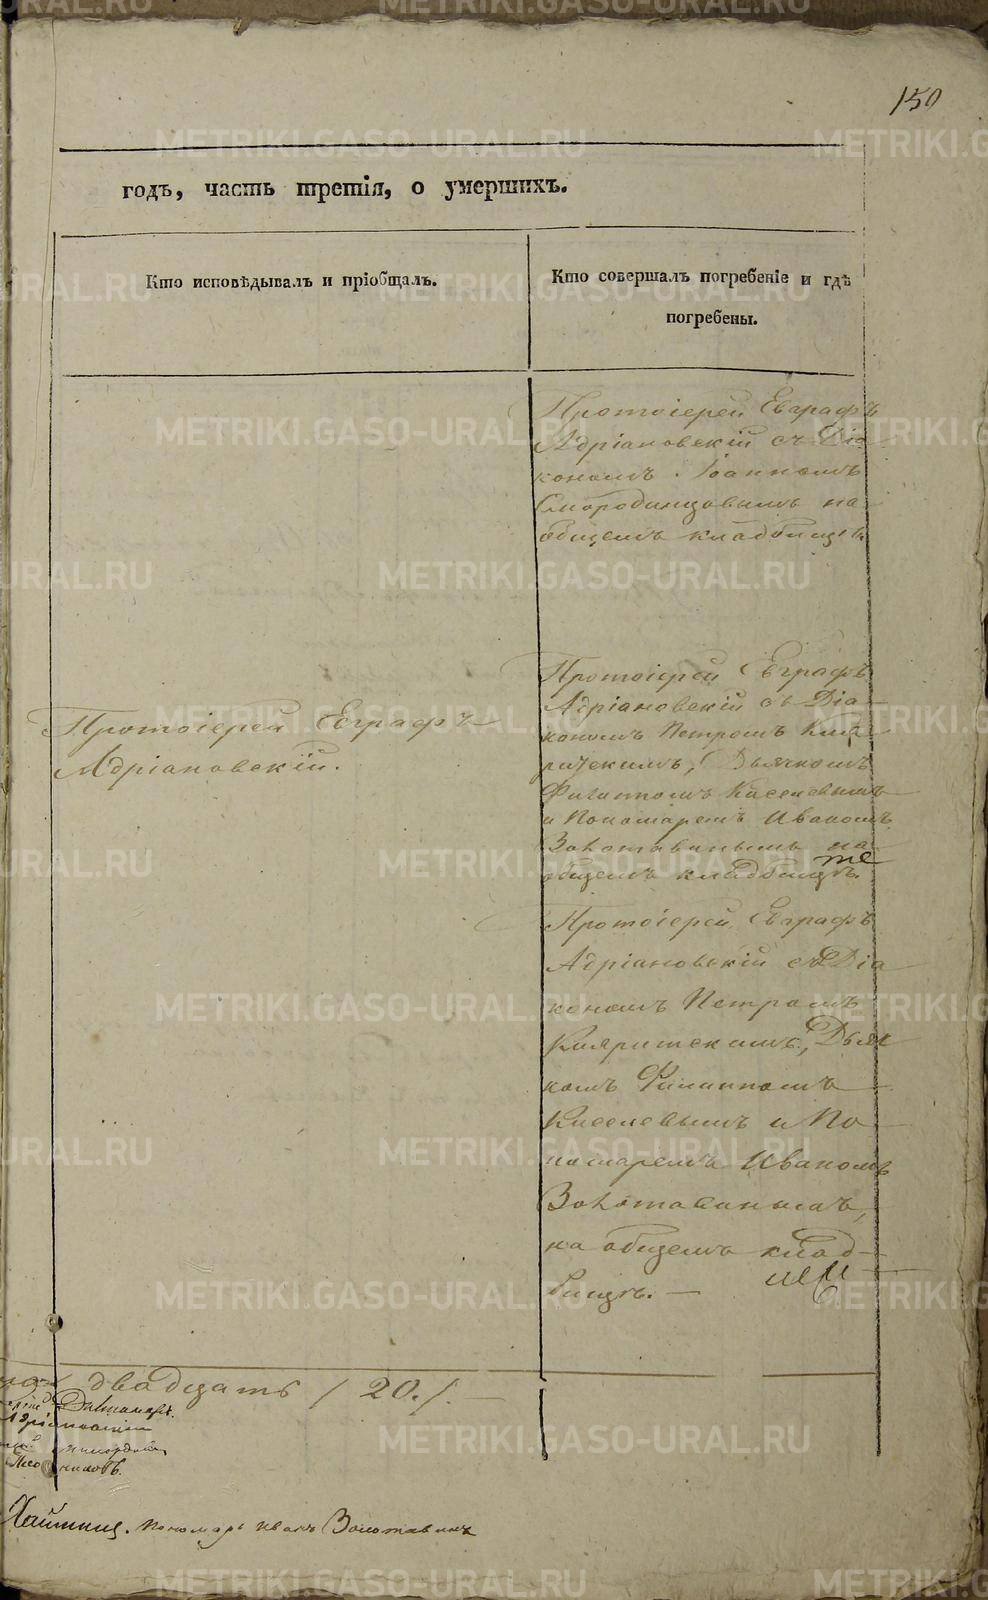 150
годъ, часть третія, о умершихъ.
Кто исповѣдывалъ и пріобщалъ.
Кто совершалъ погребеніе и гдѣ
погребены.
Протоіерей Евграфъ
Адріановскій съ Діа
кономъ Іоанномъ
Смородинцовымъ на
общемъ кладбищѣ.
Протоіерей Евграфъ
Адріановскій.
Протоіерей Евграфъ
Адріановскій съ Діа
кономъ Петромъ
Дьячкомъ
Филиппомъ Киселевымъ
и Пономаремъ Иваномъ
Золотавинымъ на
общемъ кладбищѣ.
Протоіерей Евграфъ
Адріановскій съ Діа
кономъ Петромъ
Дьяч
комъ Филиппомъ
Киселевымъ и По
номаремъ Иваномъ
Золотавинымъ,
на общемъ клад
бищѣ.
двадцать /20./.
пономарь Иванъ Золотавинъ
METRIKI.GASO-URAL.RU